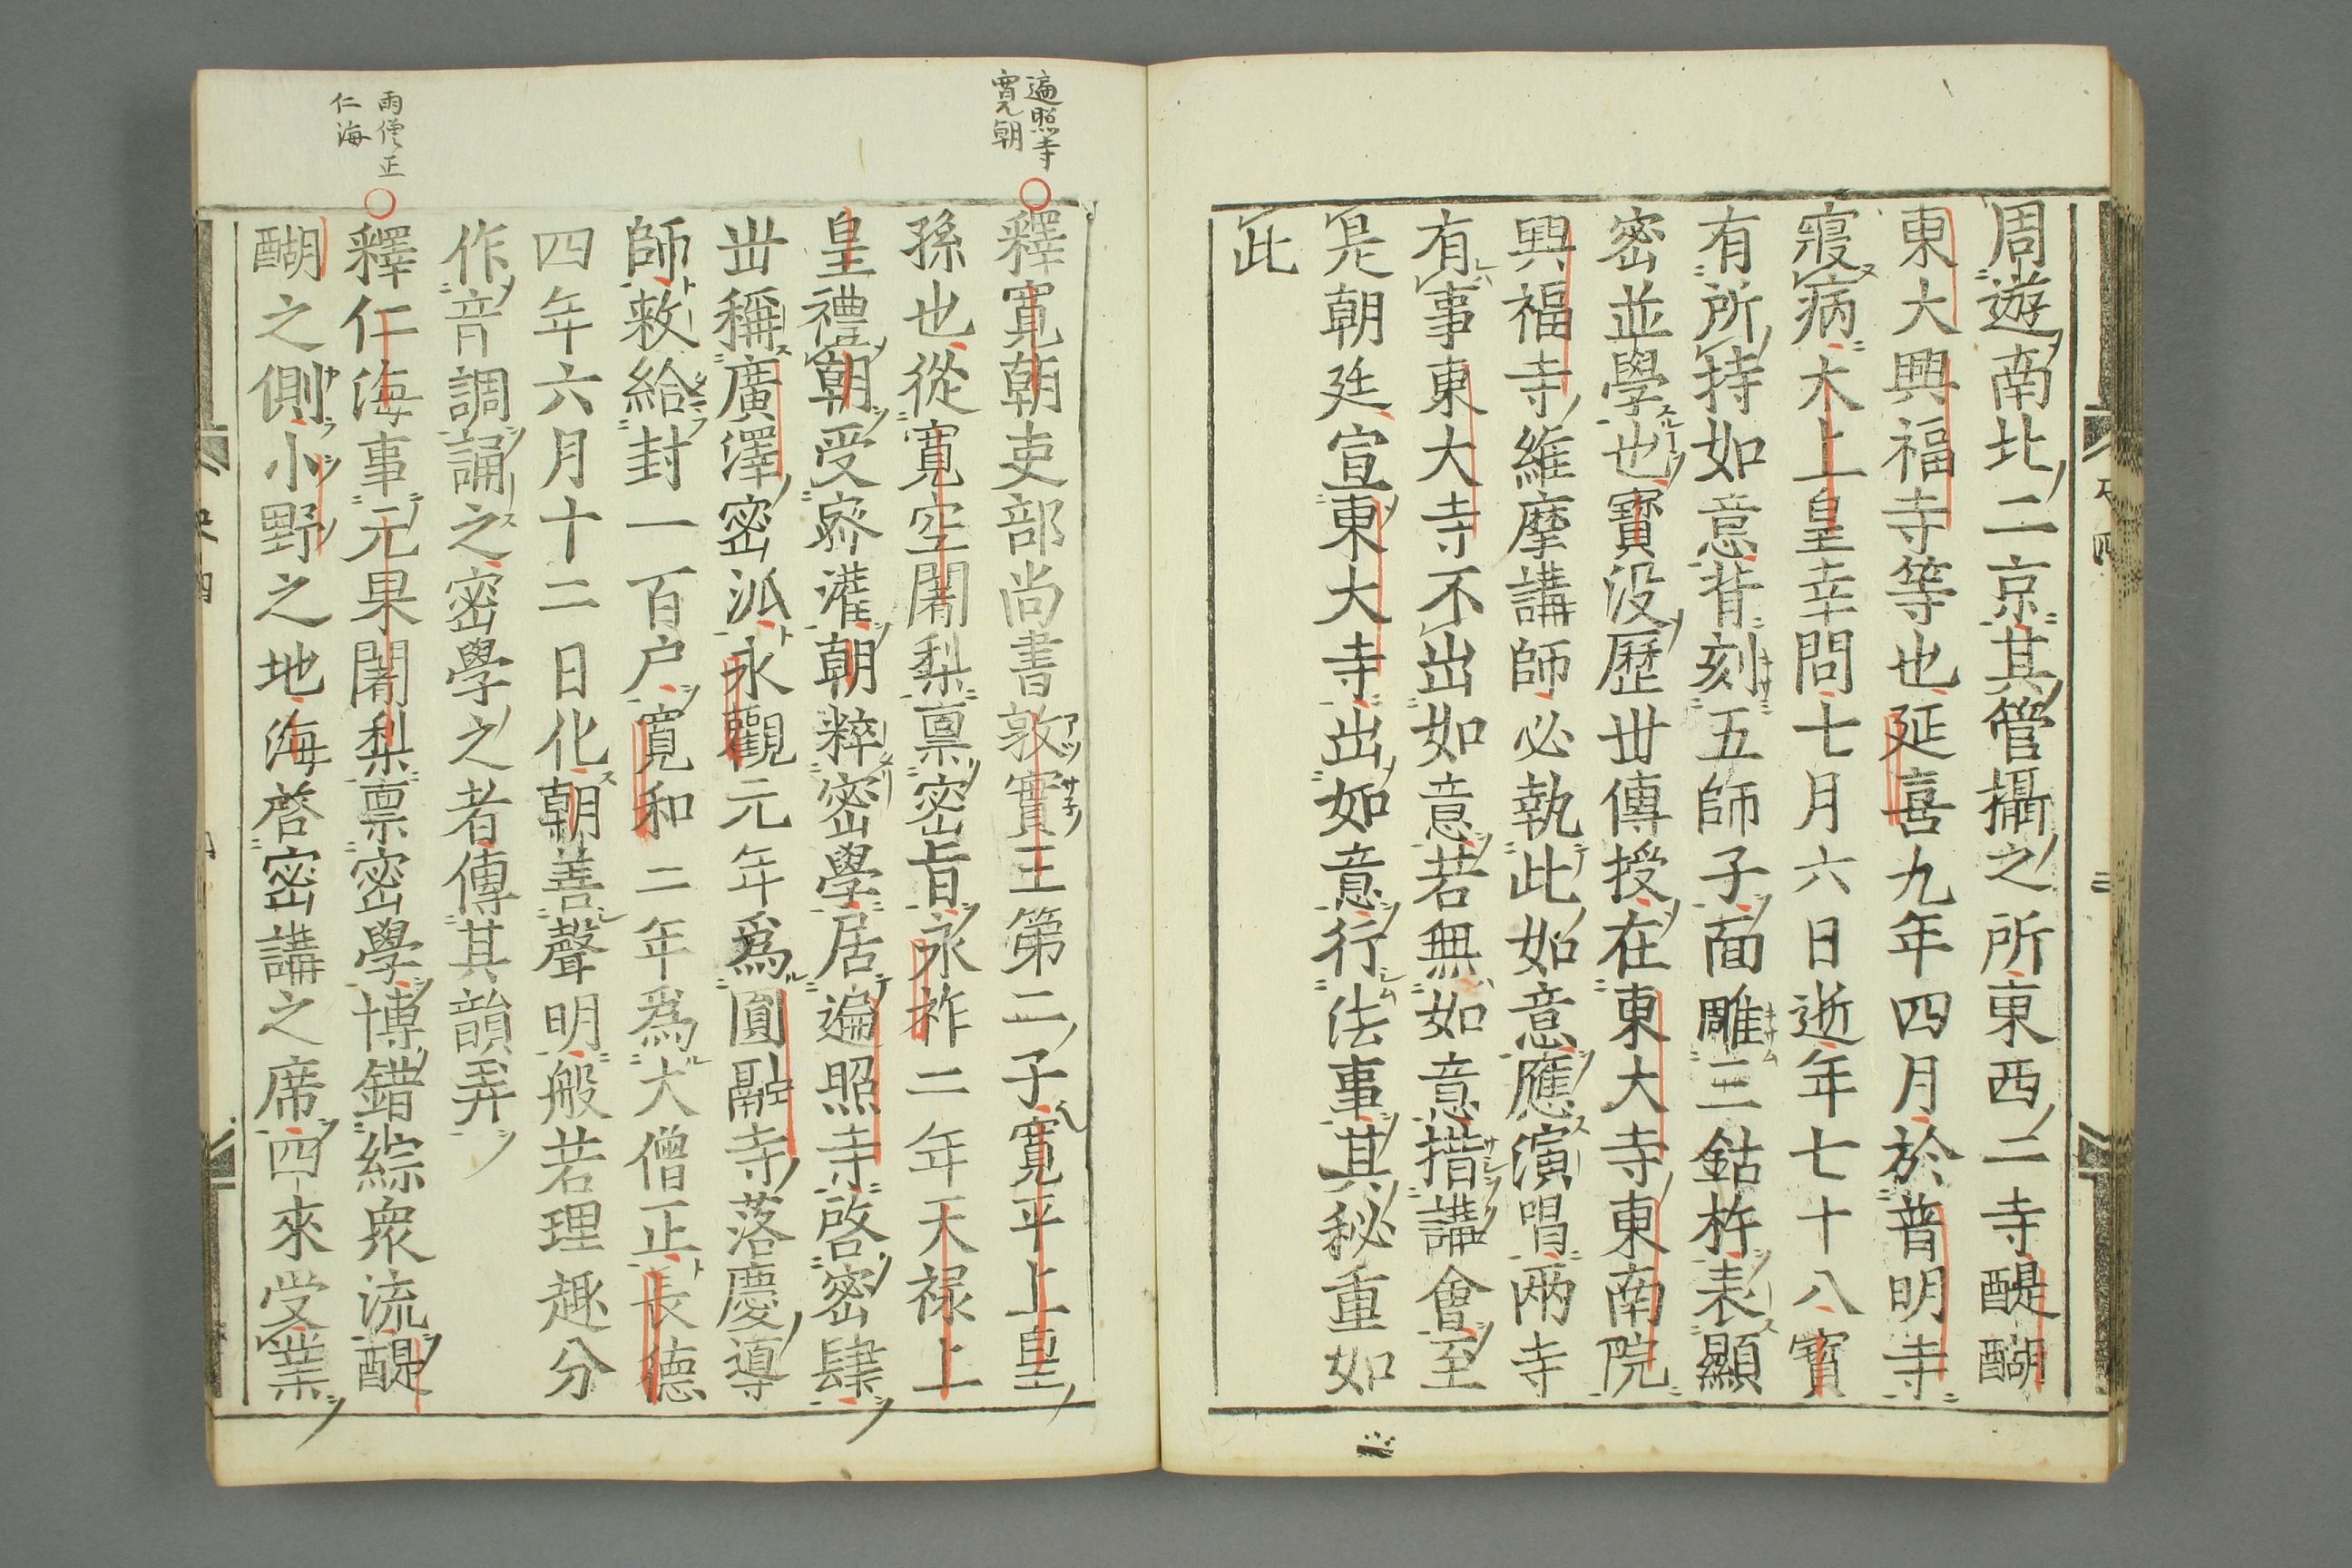 周遊南北二京其管攝之所東西二寺醍醐
東大興福寺等也延喜九年四月於普明寺
寢病太上皇幸問七月六日逝年七十八寶
有所持如意背刻五師子面雕三鈷杵表顯
密並學也寶没歷丗傳授在東大寺東南院
興福寺維摩講師必執此如意應演唱兩寺
有事東大寺不出如意若無如意措講會至
是朝廷宣東大寺出如意行法事其秘重如
此
遍照寺
寛朝
釋寬朝吏部尚書敦實王第二子寬平上皇
孫也從寬空闍梨禀密旨永祚二年天禄上
皇禮朝受密灌朝粹密學居遍照寺啓密肆
丗稱廣澤密派永觀元年爲圓融寺落慶導
師敕給封一百户寬和二年爲大僧正長德
四年六月十二日化朝善聲明般若理趣分
作音調誦之密學之者傳其韻弄
雨僧正
仁海
釋仁海事元杲闍梨禀密學博錯綜衆流醍
醐之側小野之地海啓密講之席四來受業